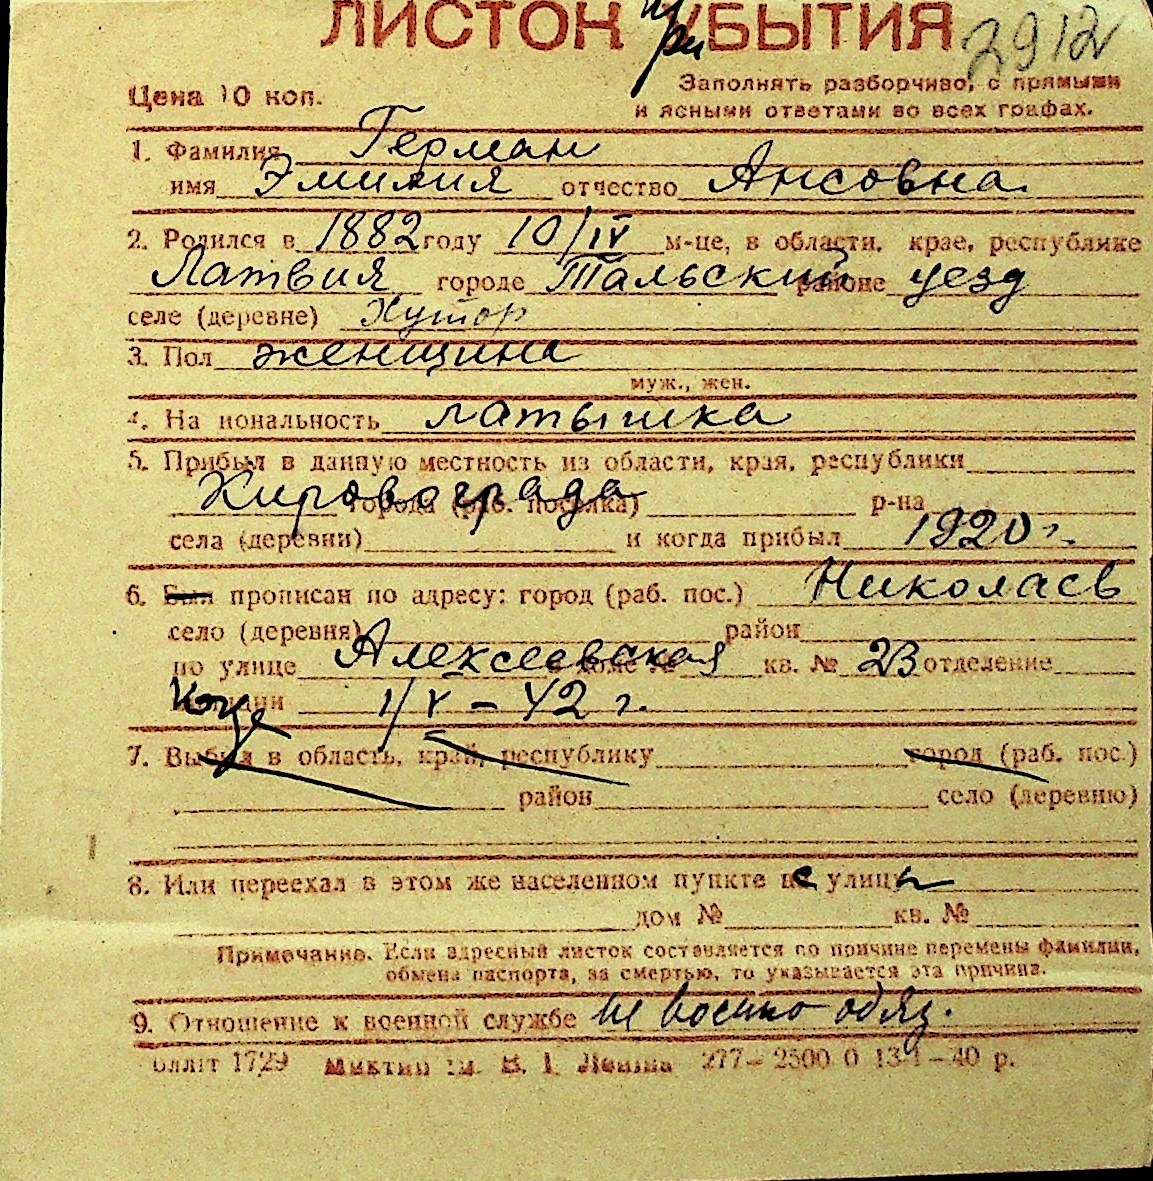 ЛИСТОК при УБЫТИЯ 2912
Цена 10 коп.
Заполнять разборчиво, с прямыми
и ясными ответами во всех графах.
1. Фамилия Герман
имя Эмилия отчество Ансовна
2. Родился в 1882 году 10/IV м-це, в области, крае, республике
Латвия городе Тальский районе уезд
селе (деревне) Хутор
3. Пол женщина
муж., жен.
4. Национальность латышка
5. Прибыл в данную местность из области, края, республики
Кировограда города (раб. поселка) р-на
села (деревни) и когда прибыл 1920 г.
6. Был прописан по адресу: город (раб. пос.) Николаев
село (деревня) район
по улице Алексеевская доме № кв. № 23 отделение
1/V – 42 г.
7. Выбыл в область, край, республику город (раб. пос.)
район село (деревню)
8. Или переехал в этом же населенном пункте с улицы
дом № кв. №
Примечание. Если адресный листок составляется по причине перемены фамилии,
обмена паспорта, за смертью, то указывается эта причина.
9. Отношение к военной службе не военно-обяз.
1729 В. І. Леніна 277– 2500 0 – 40 р.